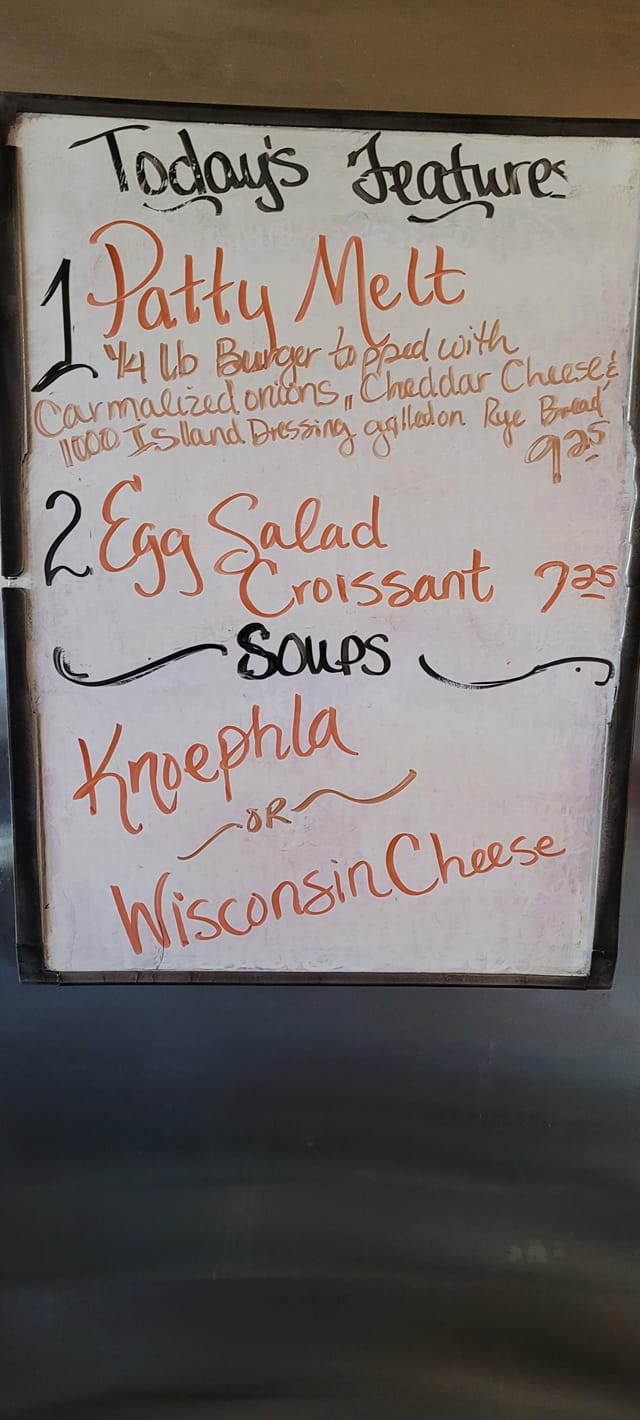 Today's Features
1 Patty Melt
1/4 lb Burger topped with
Carmalized onions, Cheddar Cheese &
1000 ISlland Dressing grilled on Rye Bread
9 25
2 Egg Salad
Croissant 7 25
Soups
Knoephla
OR
Wisconsin Cheese